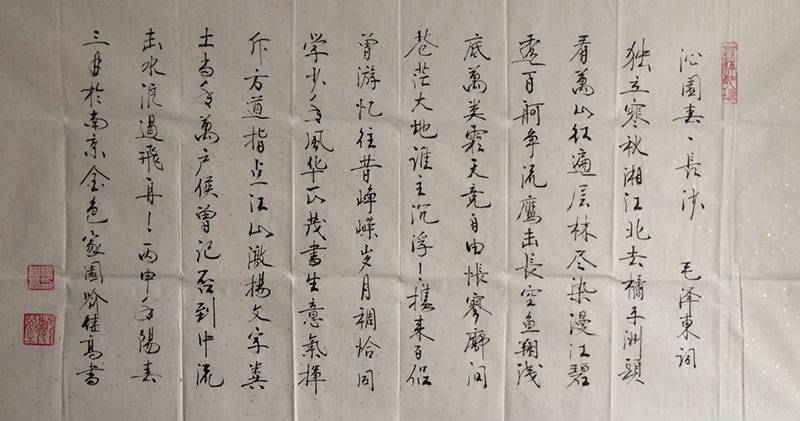 沁園春、長沙 毛泽東詞
独立寒秋湘江北去橘子洲頭
看萬山红遍层林尽染漫江碧
透百舸争流鹰击長空鱼翔浅
底萬类霜天竞自由怅寥廓问
苍茫大地谁主沉浮携来百侣
曾游忆往昔峥嵘岁月稠恰同
学少年風华正茂書生意氣揮
斥方遒指点江山激揚文字粪
土当年萬户侯曾记否到中流
击水浪遏飛舟丙申年陽春
三月於南京金色家園 佳高書